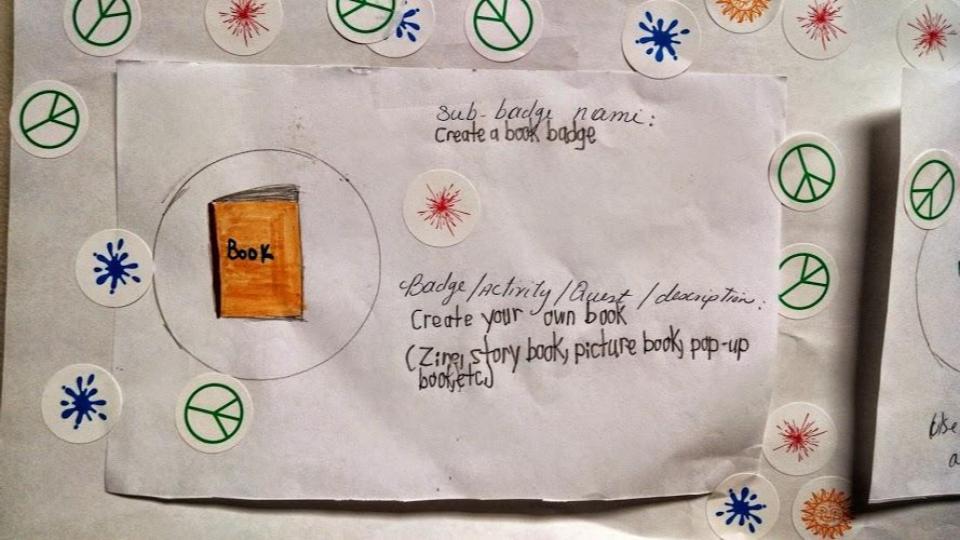 Sub-badge name:
Create a book badge
Book
Badge/Activity/Quest/description:
Create your own book
(Zine, story book, picture book, pop-up
book, etc)